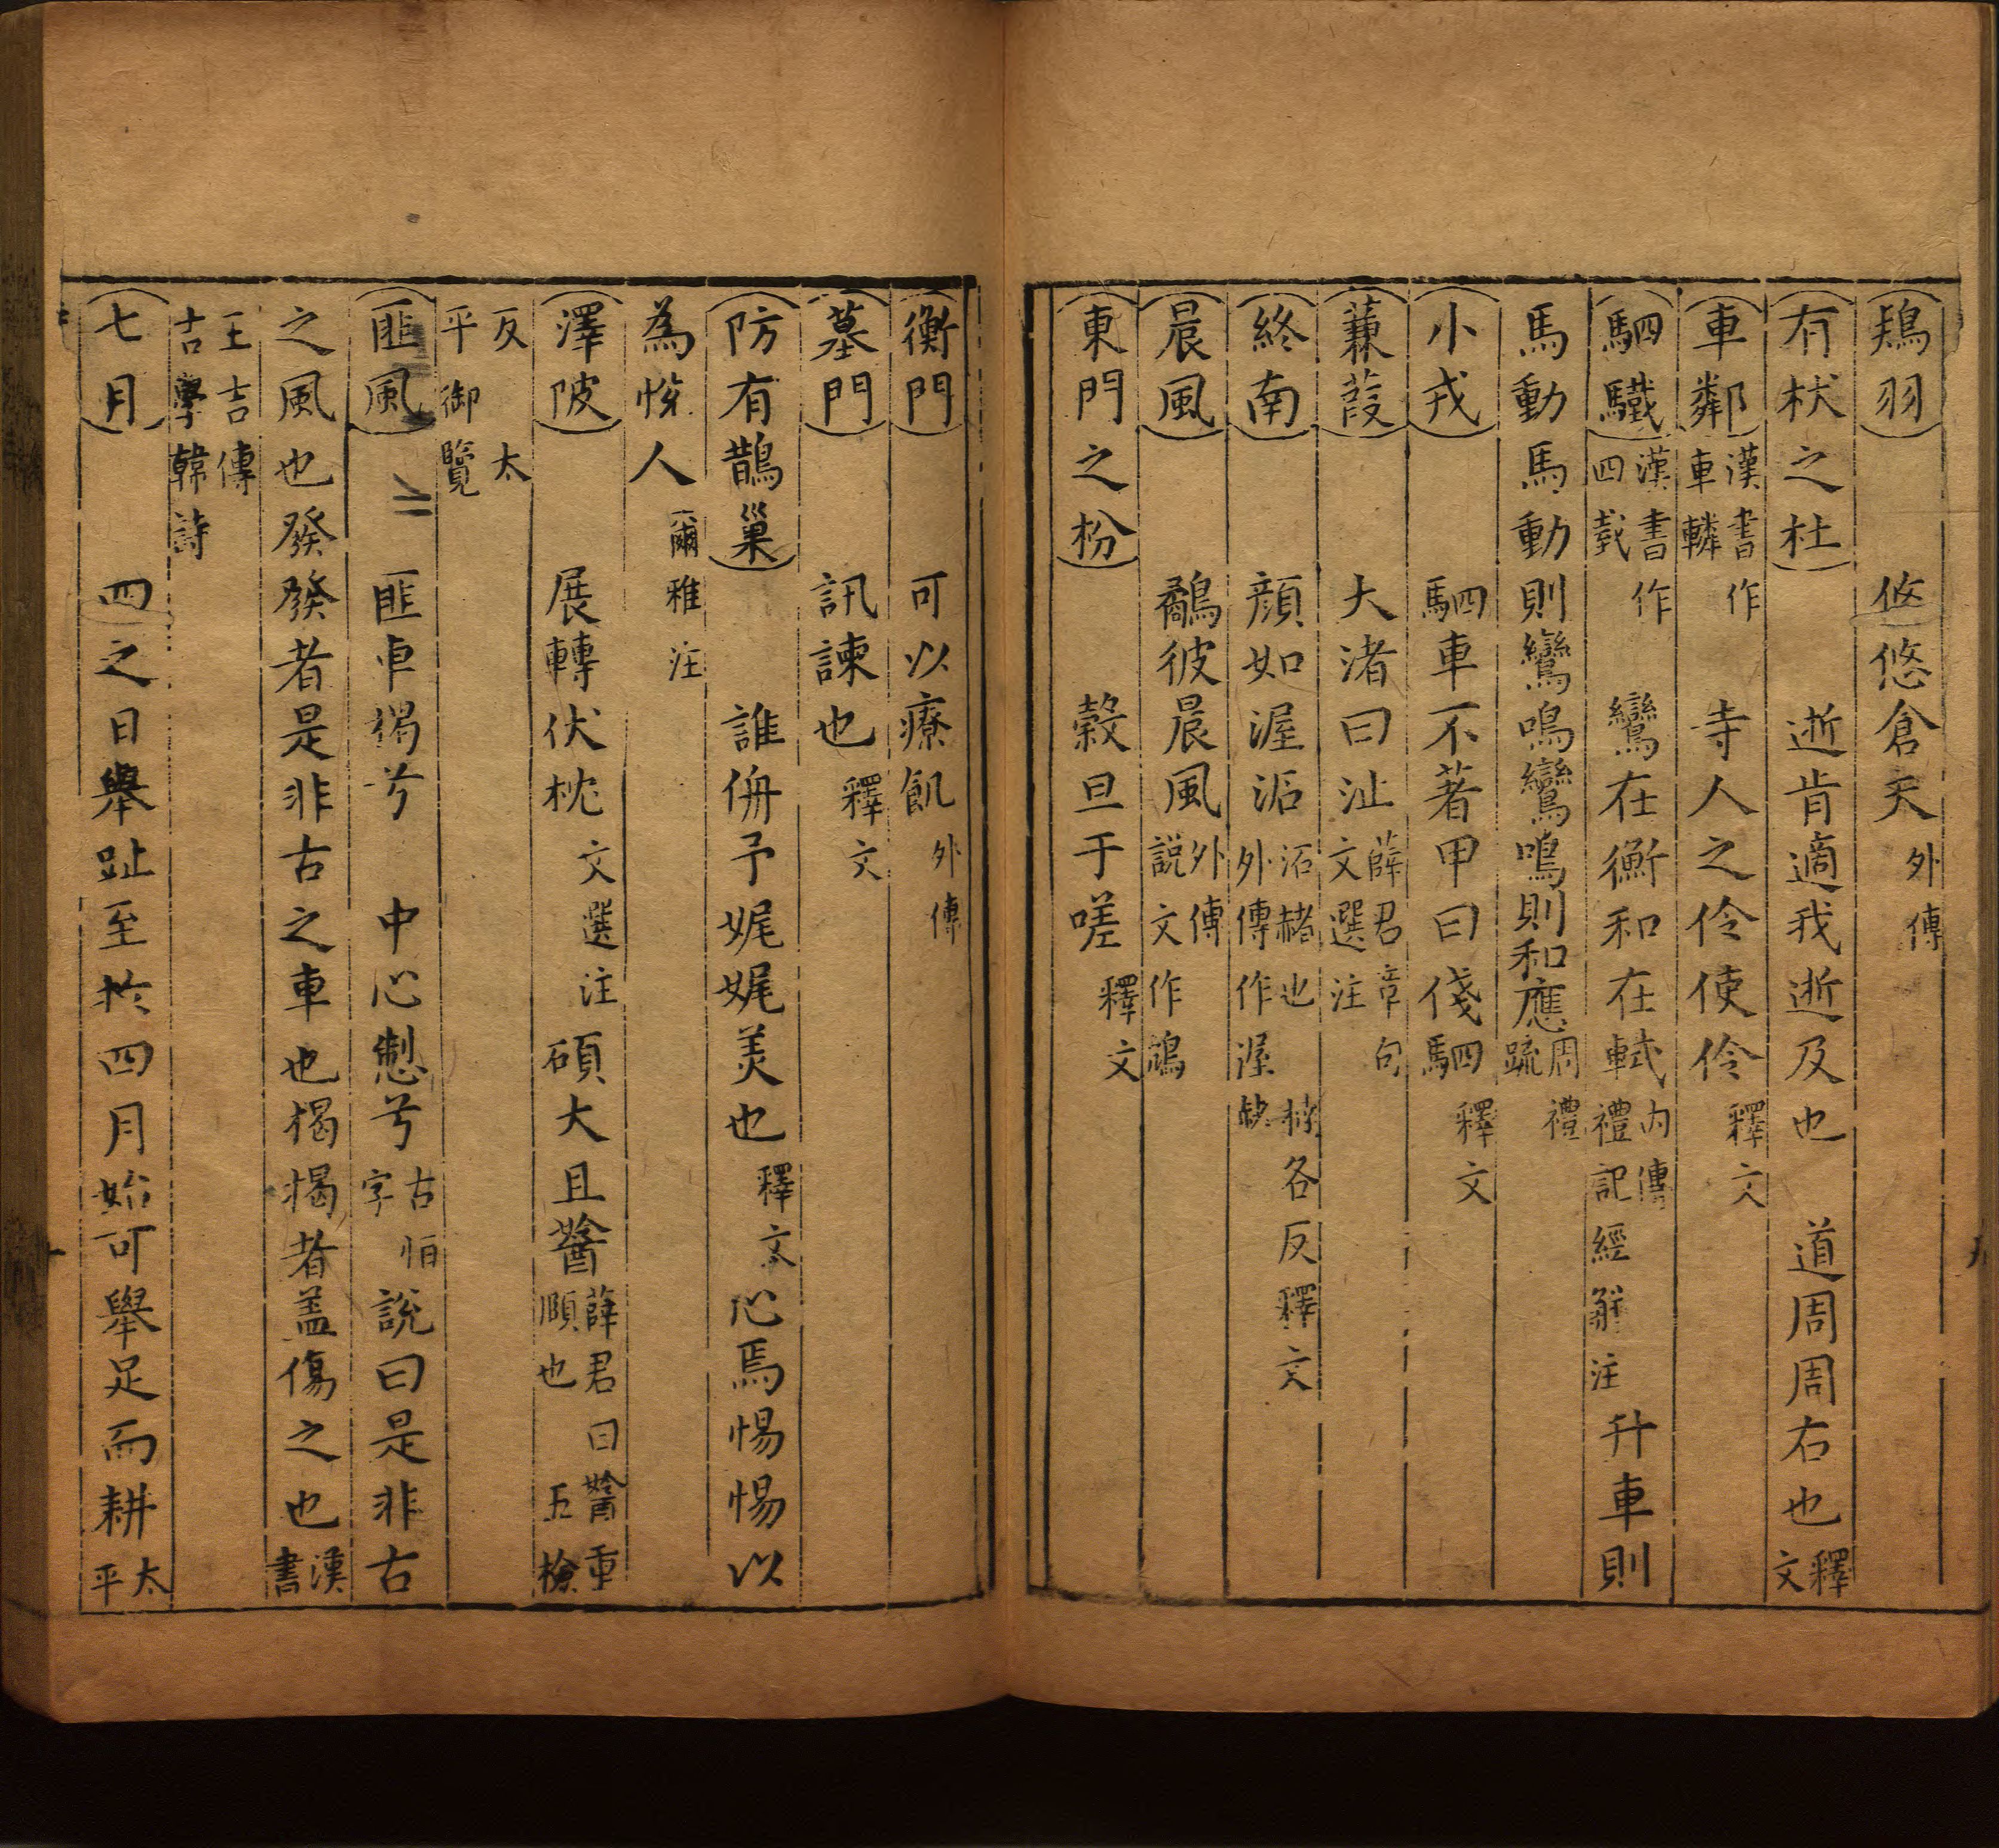 鴇羽　悠悠倉天外傳
有杕之杜　逝肯適我逝及也　道周周右也釋文
車鄰漢書作車轔　寺人之伶使伶釋文
駟驖漢書作四臷　鸞在衡和在軾內傳禮記經解注　升車則
馬動馬動則鸞鳴鸞鳴則和應周禮疏
小戎　駟車不著甲曰俴駟釋文
蒹葭　大渚曰沚薛君章句文選注
終南　顏如渥沰沰赭也外傳作渥　各反釋文
晨風　鷸彼晨風外傳說文作鴪
東門之枌　榖旦于嗟釋文
衡門　可以療飢外傳
墓門　訊諫也釋文
防有鵲巢　誰侜予娓娓美也釋文　心焉惕惕以
為悅人爾雅注
澤陂　展轉伏枕文選注　碩大且䤗薛君曰䤗重頤也　五檢
反　太平御覽
匪風　匪車揭兮　中心𢠵兮古怛字　說曰是非古
之風也發發者是非古之車也揭揭者蓋傷之也漢書
王吉傳吉學韓詩
七月　四之日舉趾至於四月始可舉足而耕太平